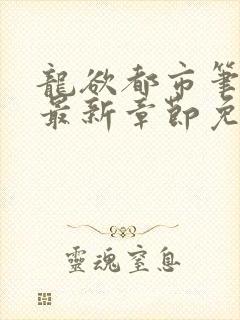 龍欲都市筆
最新章節免
靈魂窒息